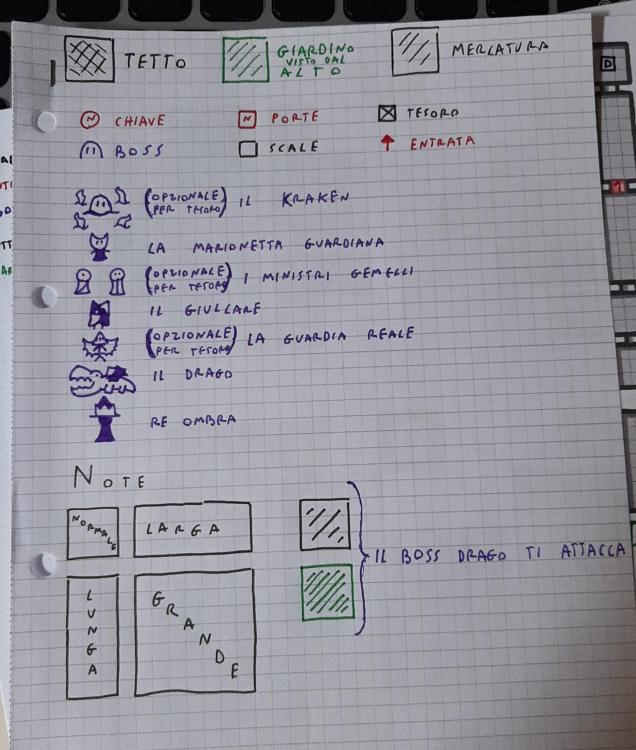 TETTO
GIARDINO
VISTO DAL
ALTO
MERLATURA
N CHIAVE
N PORTE
TESORO
BOSS
SCALE
ENTRATA
(OPZIONALE PER TESORO) IL KRAKEN
LA MARIONETTA GUARDIANA
(OPZIONALE PER TESORO) I MINISTRI GEMELLI
IL GIULLARE
(OPZIONALE PER TESORO) LA GUARDIA REALE
IL DRAGO
RE OMBRA
NOTE
NORMALE
LARGA
IL BOSS DRAGO TI ATTACCA
LUNGA
GRANDE
D
1